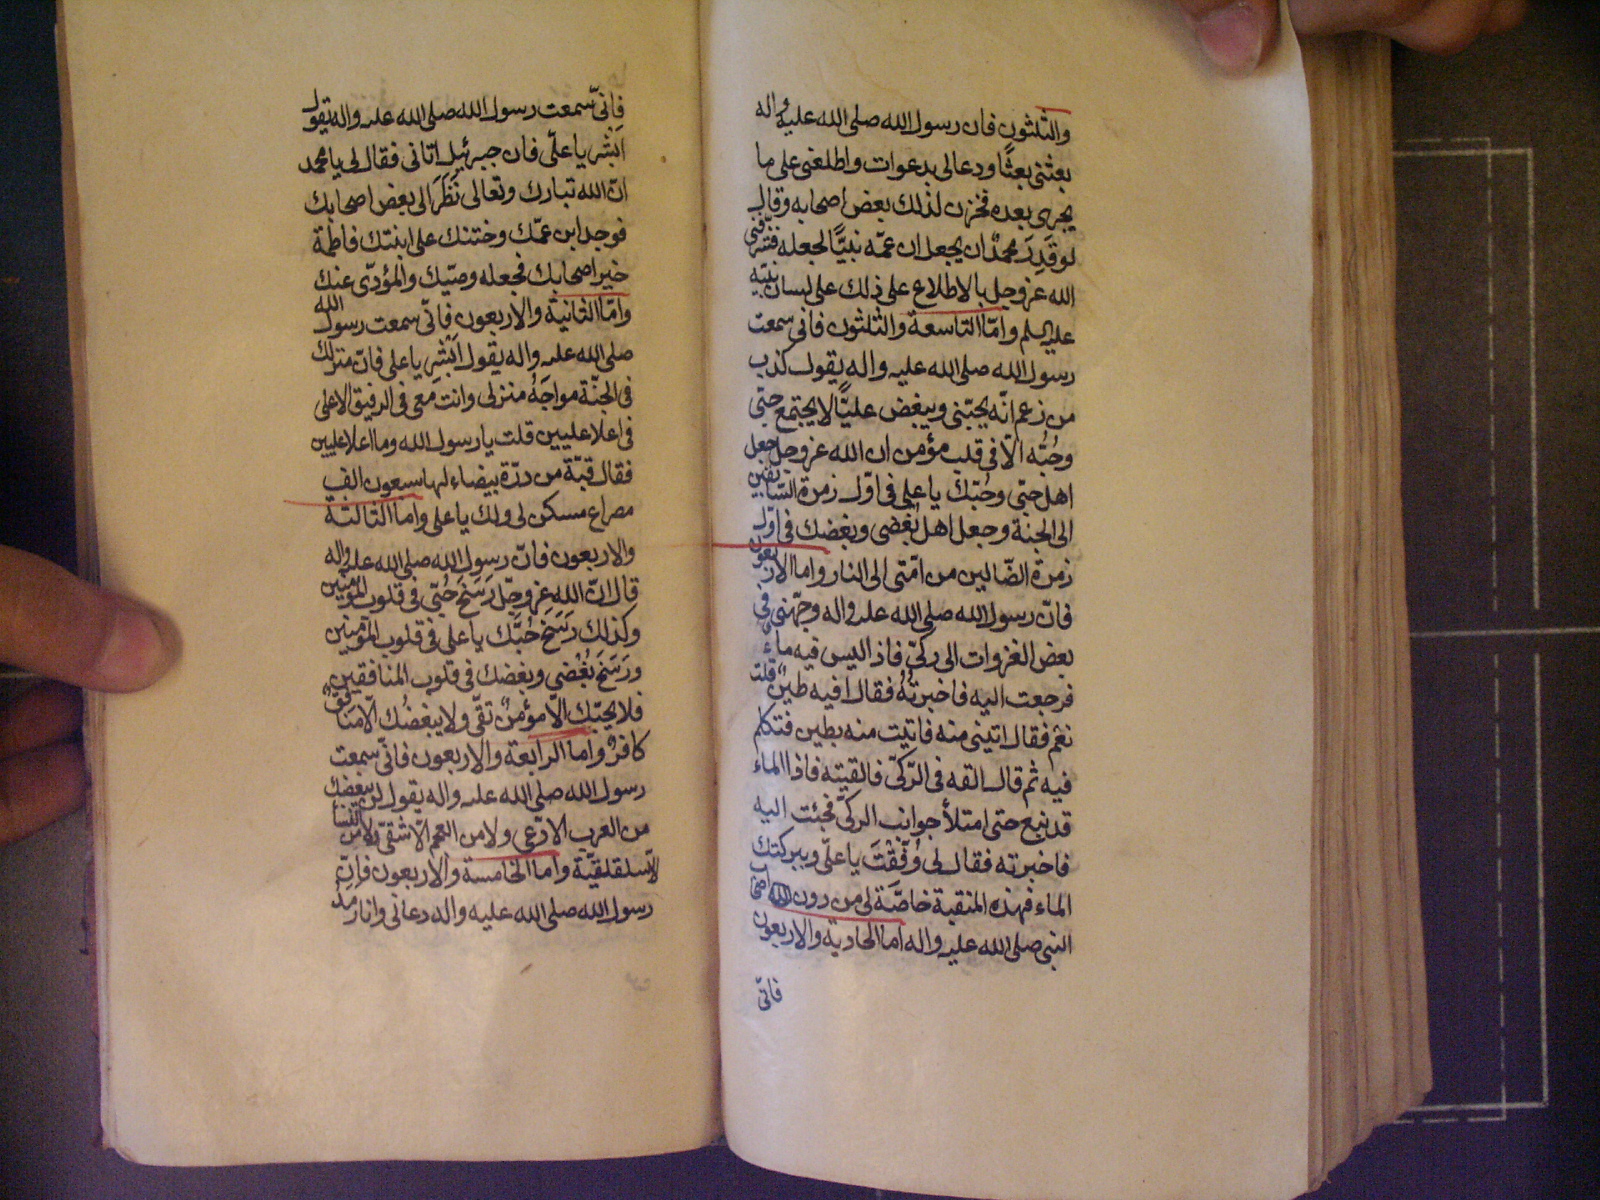 والثلثون فان رسول الله صلى الله عليه واله
بعثنى بعثًا ودعالى بدعوات واطلعنى على ما
يجرى بعده فحزن لذلك بعض اصحابه وقال
لو قَدِرَ محمدٌ ان يجعل ابن عمّه نبيًّا لجعله فشرّفنى
الله عز وجل بالاطلاع على ذلك على لسان نبيّه
عليه السلم وامّا التاسعة والثلثون فانى سمعت
رسول الله صلى الله عليه واله يقول كذب
من زعم انّه يحبّنى ويبغض عليًّا لا يجتمع حبّى
وحُبُّه الّا فى قلب مؤمن ان الله عز وجل جعل
اهل حبّى وحُبّك يا على فى اوّل زمرة السّابقين
الى الجنة وجعل اهل بُغضى وبغضك فى اوّل
زمرة الضّالين من امّتى الى النار واما الاربعون
فانّ رسول الله صلى الله عليه واله وجّهنى فى
بعض الغزوات الى ركىّ فاذا ليس فيه ماء
فرجعت اليه فاخبرتُهُ فقال افيه طينٌ قلت
نعم فقال ائتينى منه فاتيت منه بطين فتكلم
فيه ثم قال القه فى الرّكىّ فالقيته فاذا الماء
قد نبع حتى امتلأ جوانب الركىّ فجئت اليه
فاخبرته فقال لى وُفّقْتَ يا علىّ وببركتك نبع
الماء فهذه المنقبة خاصّة لى من دون اصحاب
النبى صلى الله عليه واله اما الحادية والاربعون
فانّى
فاِنّى سمعت رسول الله صلى الله عليه واله يقول
ابشر يا علىّ فان جبرئيل اتانى فقال لى يا محمد
انّ الله تبارك وتعالى نَظَرَ الى بعض اصحابك
فوجد ابن عمّك وختنك على ابنتك فاطمة
خير اصحابك فجعله وصيّك والمؤدّى عنك
وامّا الثانية والاربعون فانّى سمعت رسول الله
صلى الله عليه واله يقول اَبْشِر يا على فانّ منزلك
فى الجنّة مواجَهُ منزلى وانت معى فى الرفيق الاعلى
فى اعلا عليين قلت يا رسول الله وما اعلا عليين
فقال قبّة من درّة بيضاء لها سبعون الف
مصراع مسكن لى ولك يا على واما الثالثة
والاربعون فانّ رسول الله صلى الله عليه واله
قال انّ الله عز وجلّ رَسَخَ حُبّى فى قلوب المؤمنين
وكذلك رَسَخَ حُبَّك يا على فى قلوب المؤمنين
ورَسَخَ بُغضى وبغضك فى قلوب المنافقين
فلا يحبّك الّا مؤمنٌ تقى ولا يبغضُك الّا منافقٌ
كافرٌ واما الرابعة والاربعون فانّى سمعت
رسول الله صلى الله عليه واله يقول لن يبغضك
من العرب الا دعى ولا من العجم الّا شقىّ ولا من النسا
الّا سلقلقيّة واما الخامسة والاربعون فانّ
رسول الله صلى الله عليه واله دعانى وانا رَمِدٌ